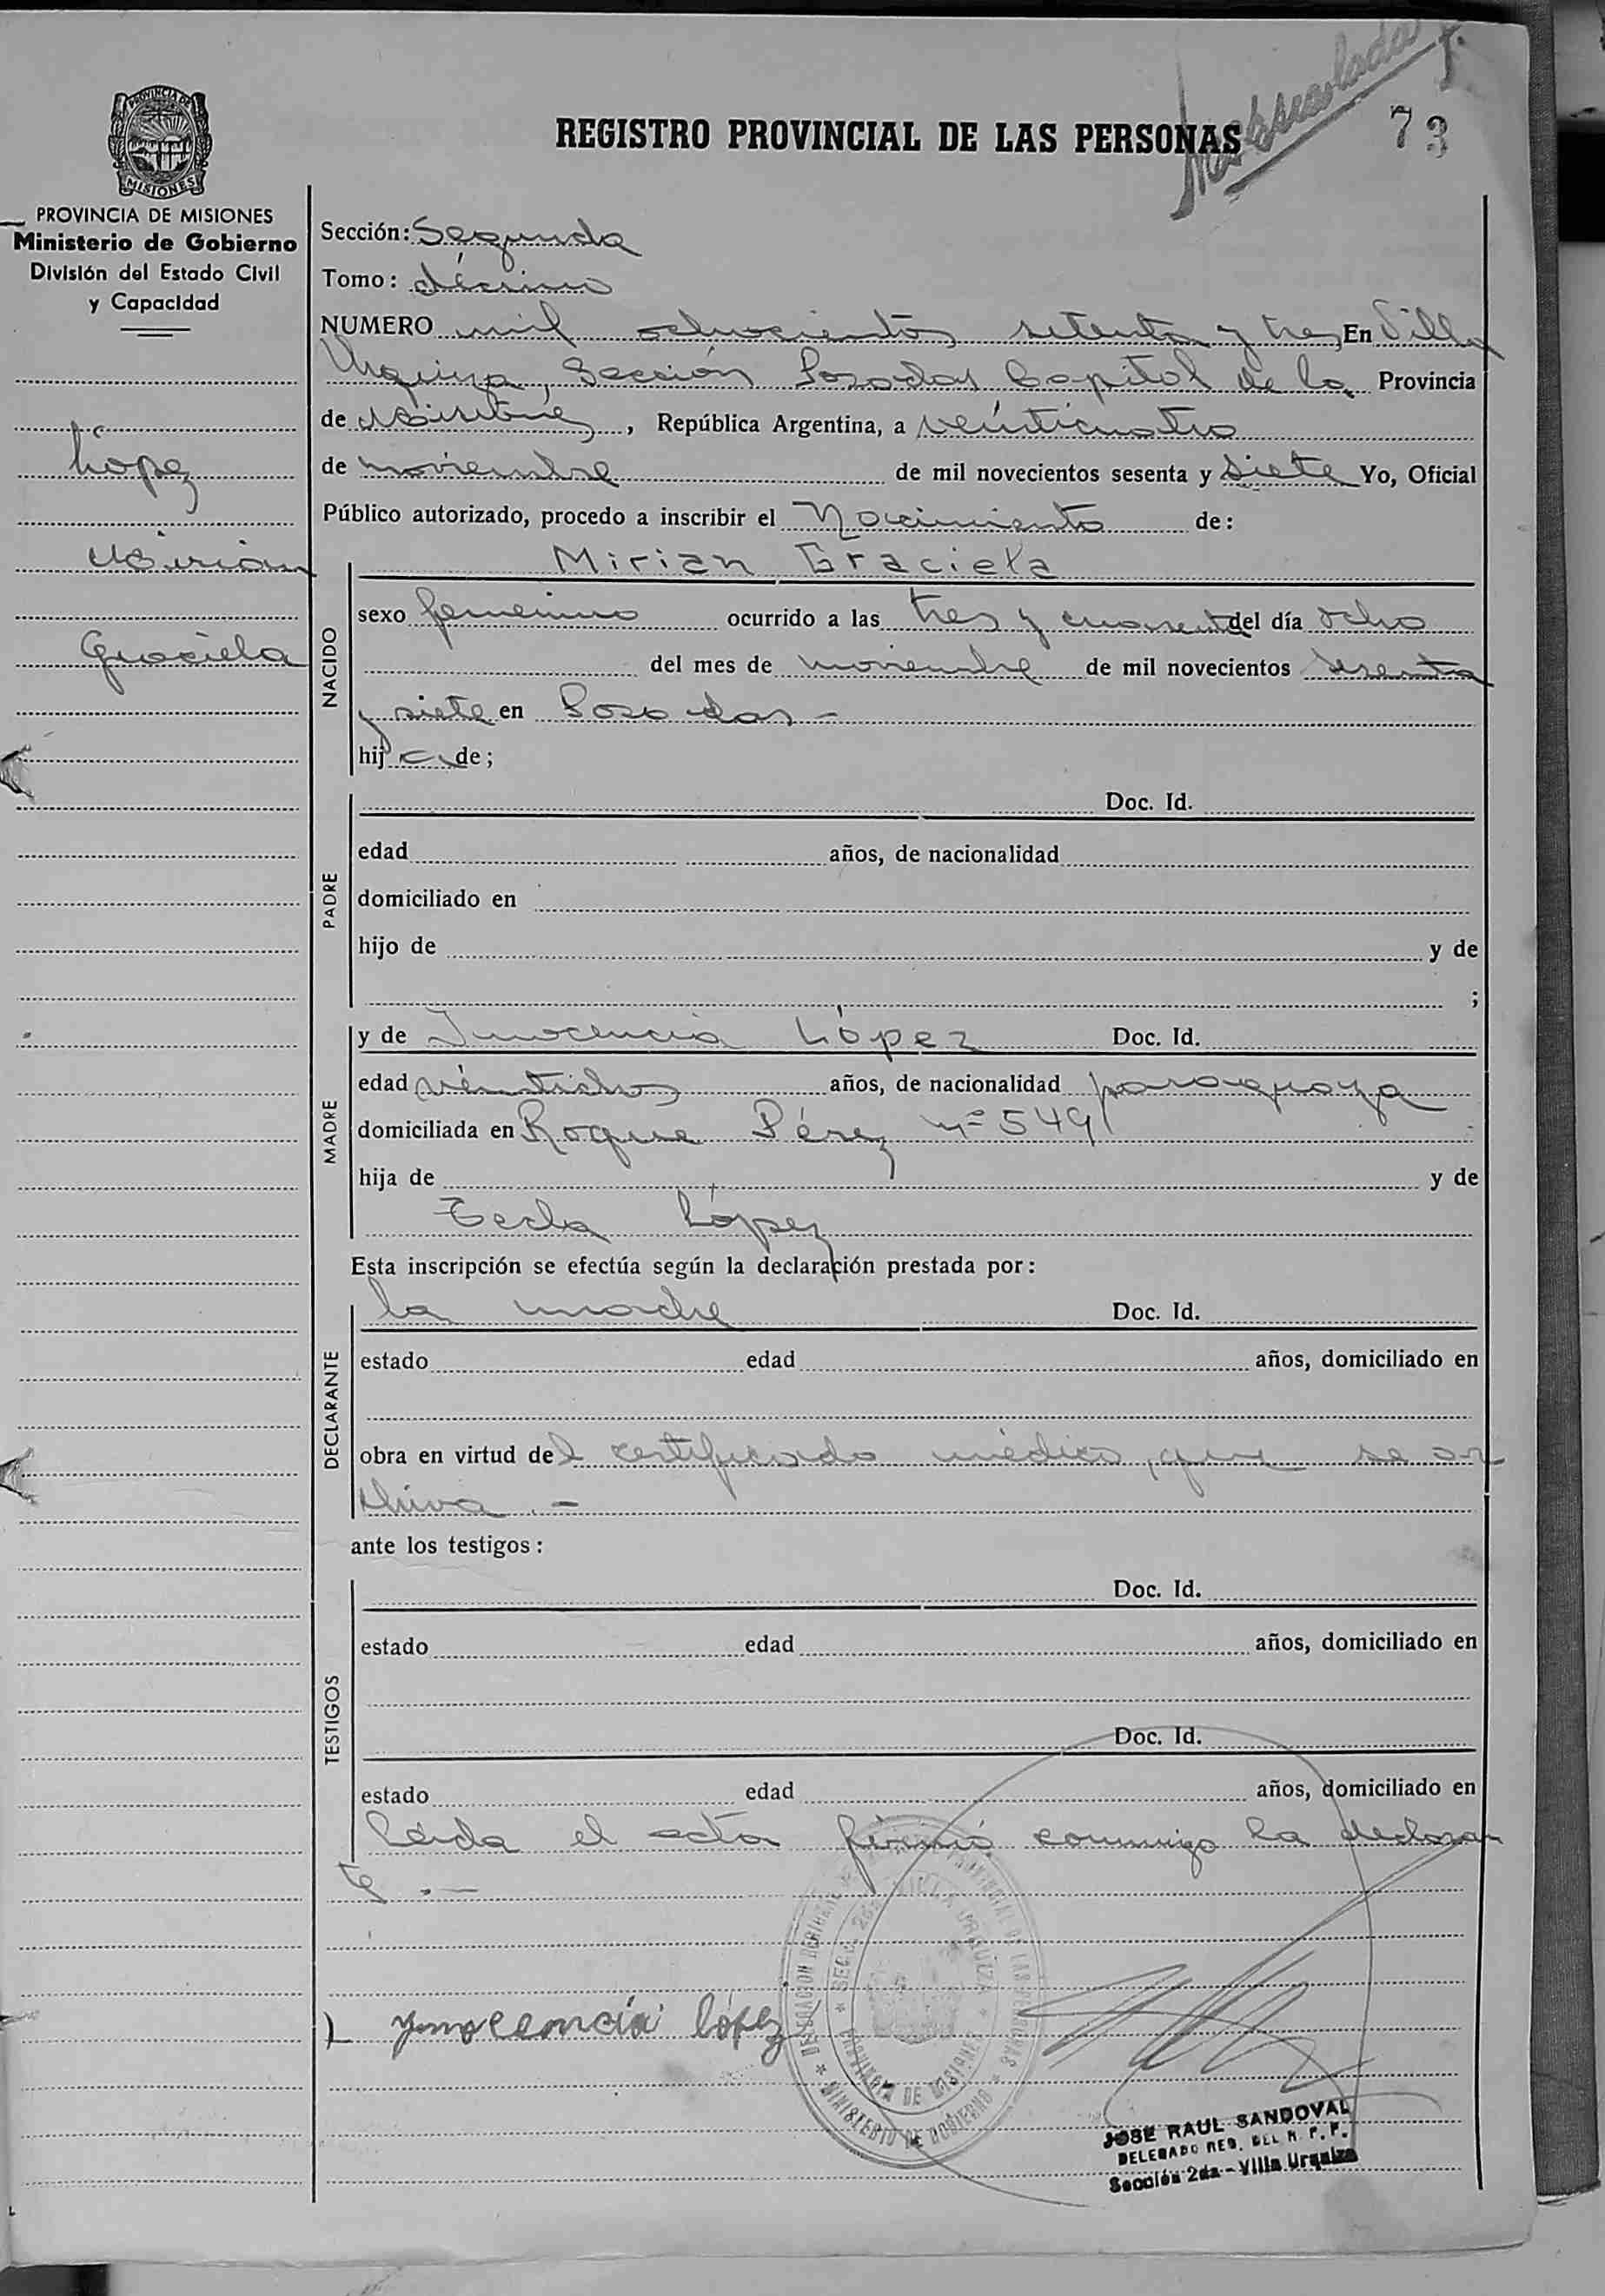 Matriculada F.
73
PROVINCIA DE
MISIONES
REGISTRO PROVINCIAL DE LAS PERSONAS
PROVINCIA DE MISIONES
Ministerio de Gobierno
División del Estado Civil
y Capacidad
López
Mirian
Graciela
Sección: Segunda
Tomo: décimo
NUMERO mil ochocientos setenta y tres En Villa
Urquiza, Sección Posadas Capital de la Provincia
de Misiones, República Argentina, a veinticuatro
de noviembre de mil novecientos sesenta y siete Yo, Oficial
Público autorizado, procedo a inscribir el Nacimiento de:
NACIDO
Mirian Graciela
sexo femenino ocurrido a las tres y cuarenta del día ocho
del mes de noviembre de mil novecientos sesenta
y siete en Posadas -
hija de;
PADRE
Doc. Id.
edad años, de nacionalidad
domiciliado en
hijo de y de
;
MADRE
y de Inocencia López Doc. Id.
edad veintiocho años, de nacionalidad paraguaya
domiciliada en Roque Pérez nº 549
hija de y de
Tecla López
Esta inscripción se efectúa según la declaración prestada por:
DECLARANTE
la madre Doc. Id.
estado edad años, domiciliado en
obra en virtud del certificado médico, que se ar
chiva .-
ante los testigos:
TESTIGOS
Doc. Id.
estado edad años, domiciliado en
Doc. Id.
estado edad años, domiciliado en
Leída el acta firmó conmigo la declaran
te .-
ynoceencia lópez
* PROVINCIAL DE LAS PERSONAS * MINISTERIO DE GOBIERNO *
* SECC. 2da VILLA URQUIZA * PROVINCIA DE MISIONES
JOSE RAUL SANDOVAL
DELEGADO REG. DEL R. P. P.
Sección 2da - Villa Urquiza